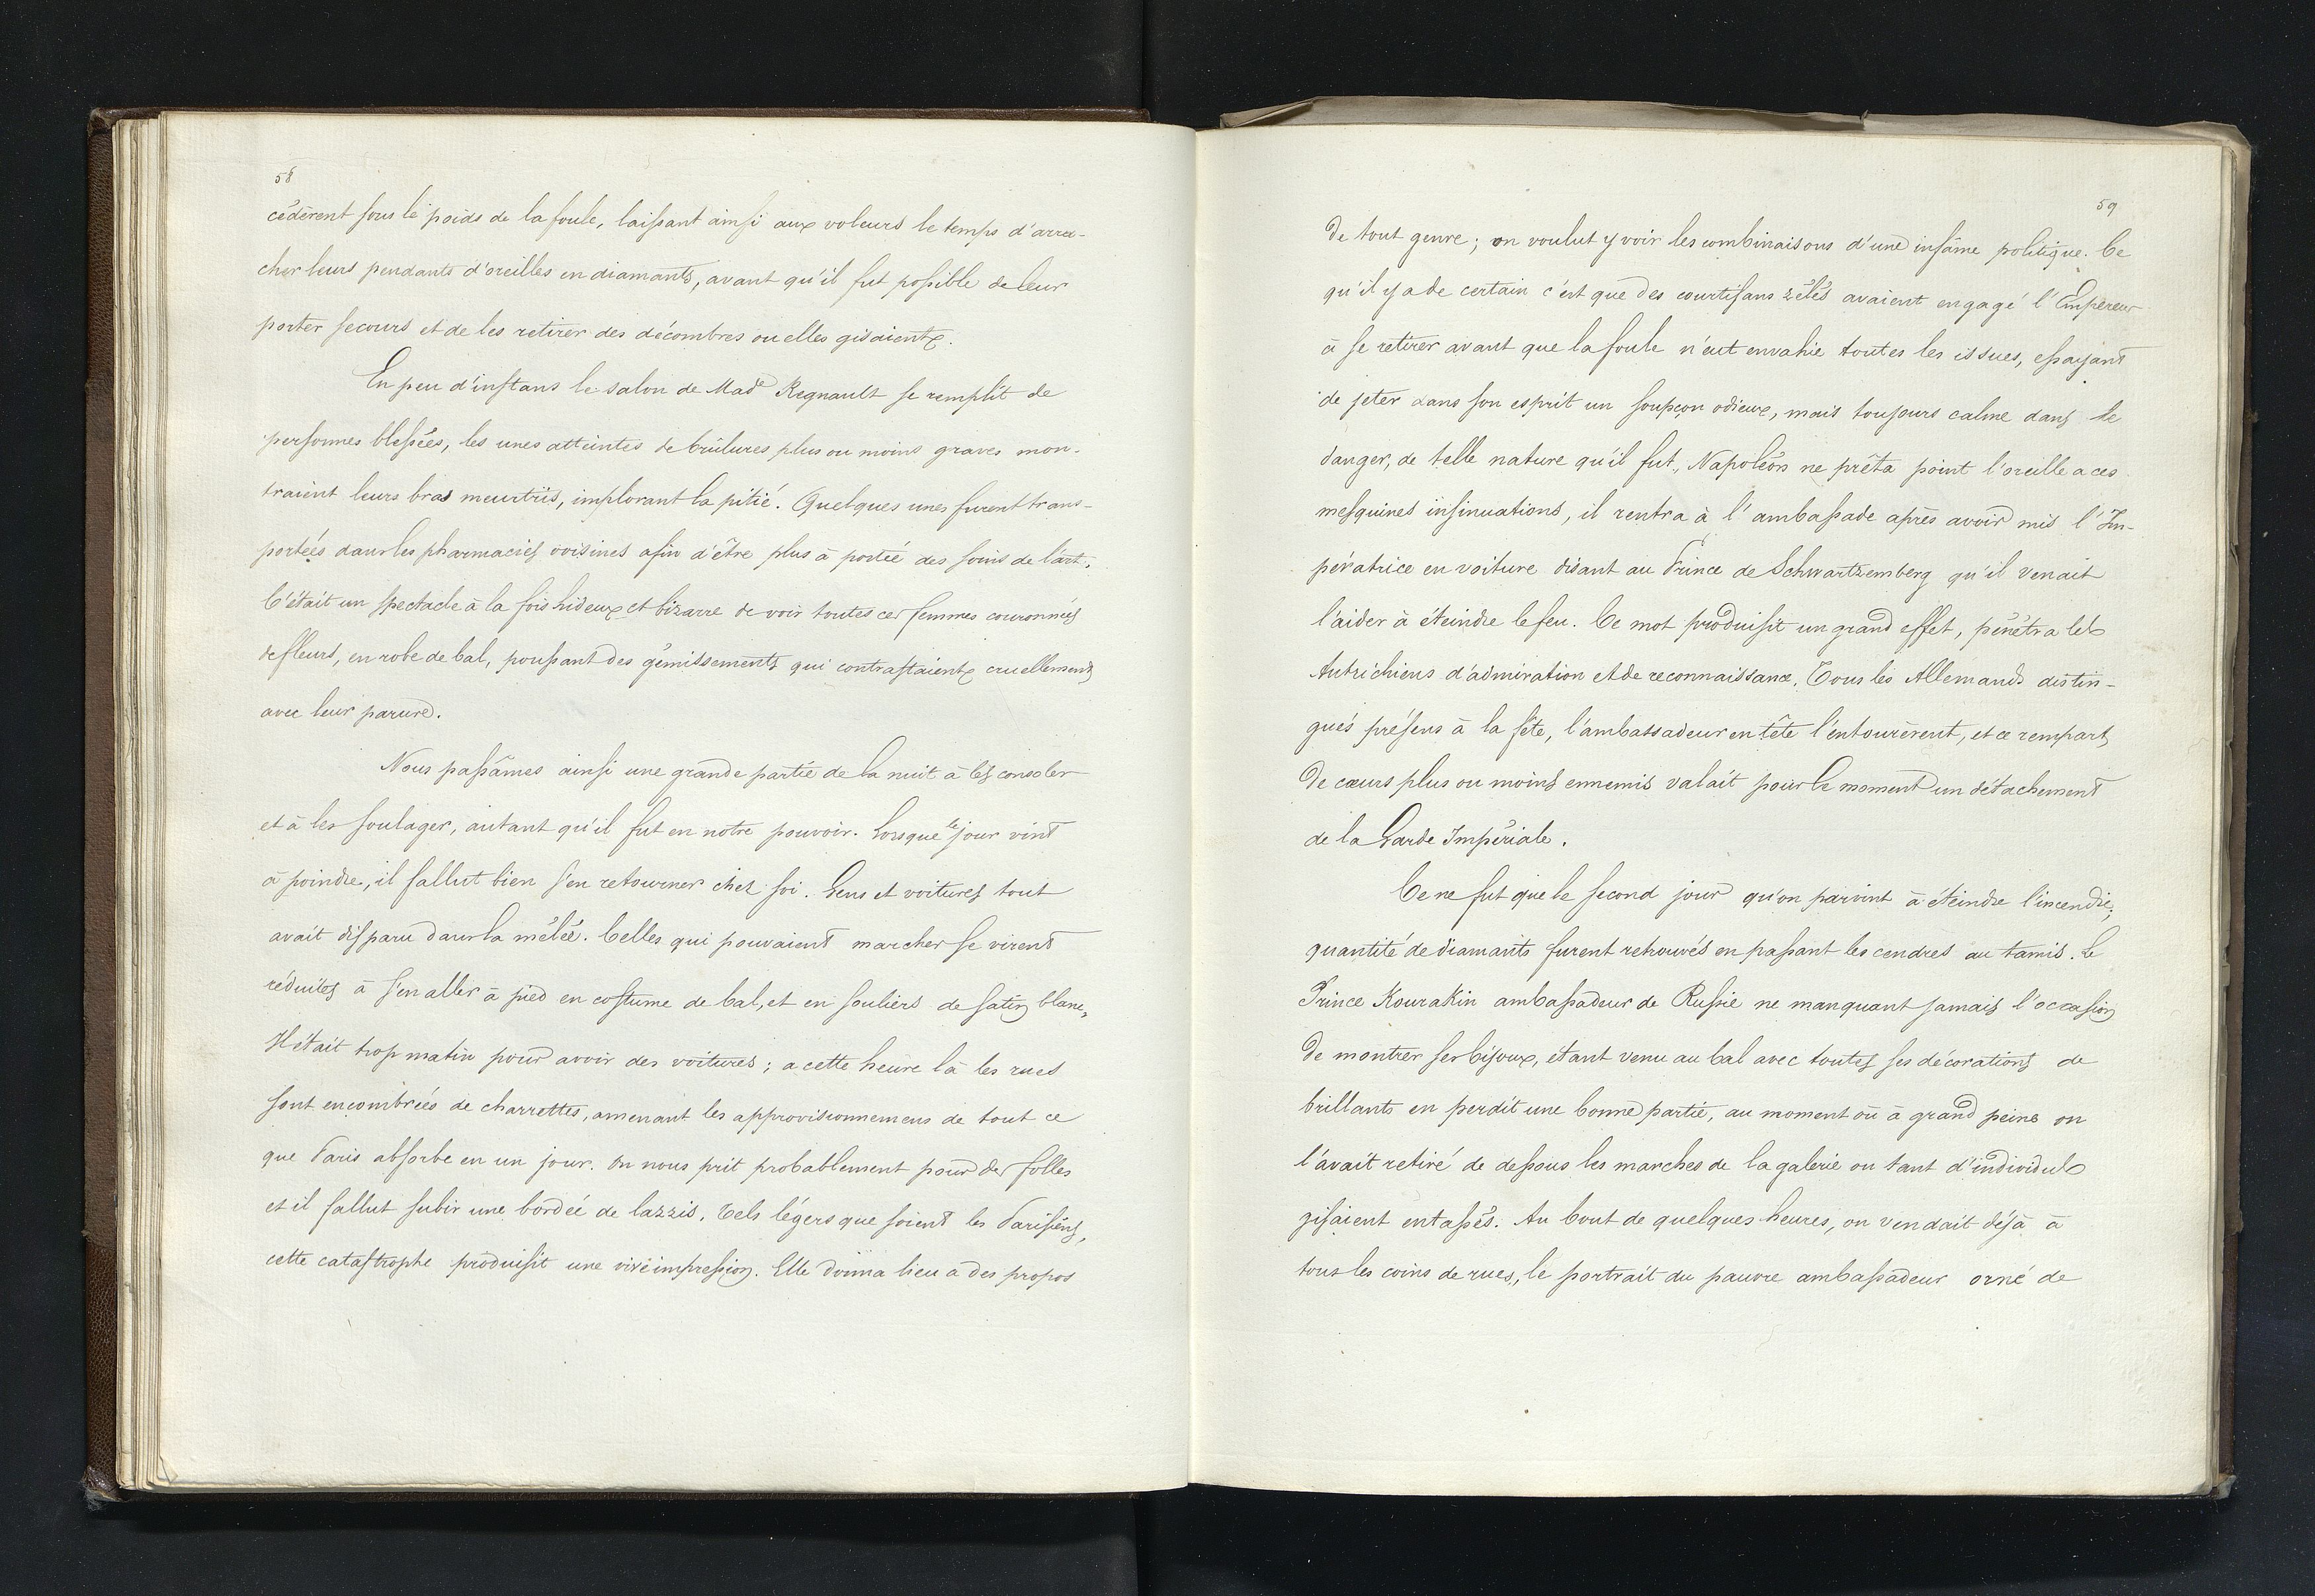 58
cédèrent sous le poids de la foule, laissant ainsi aux voleurs le temps d'arra-
cher leurs pendants d'oreilles en diamants, avant qu'il fut possible de leur
porter secours et de les retirer des décombres ou elles gisaient.
En peu d'instans le salon de Mad.e Regnault se remplit de
personnes blessées, les unes atteintes de brûlures plus ou moins graves mon-
traient leurs bras meurtris, implorant la pitié. Quelques unes furent trans-
portées dans les pharmacies voisines afin d'être plus à portée des soins de l'art.
C'était un spectacle à la fois hideux et bizarre de voir toutes ces femmes couronnées
de fleurs, en robe de bal, poussant des gémissements qui contrastaient cruellement
avec leur parure.
Nous passâmes ainsi une grande partie de la nuit à les consoler
et à les soulager, autant qu'il fut en notre pouvoir. Lorsque le jour vint
à poindre, il fallut bien s'en retourner chez soi. Gens et voitures tout
avait disparu dans la mêlée. Celles qui pouvaient marcher se virent
réduites à s'en aller à pied en costume de bal, et en souliers de satin blanc,
Il était trop matin pour avoir des voitures; a cette heure là les rues
sont encombrées de charrettes, amenant les approvisionnemens de tout ce
que Paris absorbe en un jour. On nous prit probablement pour des folles
et il fallut subir une bordée de lazzis. Tels légers que soient les Parisiens,
cette catastrophe produisit une vive impression. Elle donna lieu a des propos
59
de tout genre; on voulut y voir les combinaisons d'une infâme politique. Ce
qu'il y a de certain c'est que des courtisans zélés avaient engagé l'Empereur
à se retirer avant que la foule n'eut envahie toutes les issues, essayant
de jeter dans son esprit un soupçon odieux, mais toujours calme dans le
danger, de telle nature qu'il fut, Napoléon ne prêta point l'oreille a ces
mesquines insinuations, il rentra à l'ambassade après avoir mis l'Im-
pératrice en voiture disant au Prince de Schwartzemberg qu'il venait
l'aider à éteindre le feu. Ce mot produisit un grand effet, pénétra les
Autrichiens d'admiration et de reconnaissance. Tous les Allemands distin-
gués présens à la fête, l'ambassadeur en tête l'entourèrent, et ce rempart
de cœurs plus ou moins ennemis valait pour le moment un détachement
de la Garde Impériale.
Ce ne fut que le second jour qu'on parvint à éteindre l'incendie,
quantité de diamants furent retrouvés en passant les cendres au tamis. Le
Prince Kourakin ambassadeur de Russie ne manquant jamais l'occasion
de montrer ses bijoux, étant venu au bal avec toutes ses décorations de
brillants en perdit une bonne partie, au moment où à grand peine on
l'avait retiré de dessous les marches de la galerie ou tant d'individus
gisaient entassés. Au bout de quelques heures, on vendait déjà à
tous les coins de rues, le portrait du pauvre ambassadeur orné de